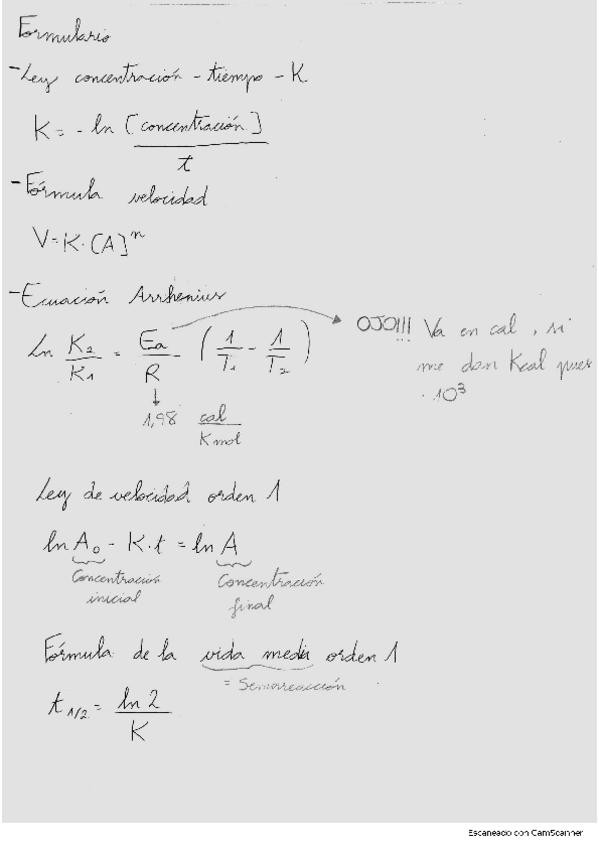 Formulario
- Ley concentración - tiempo - K
K = - ln [concentración] / t
- Fórmula velocidad
V = K · [A]^n
- Ecuación Arrhenius
Ln K2/K1 = Ea/R (1/T1 - 1/T2)
OJO!!! Va en cal, si
me dan Kcal pues
· 10^3
1,98 cal / K mol
Ley de velocidad orden 1
ln A0 - K · t = ln A
Concentración inicial
Concentración final
Fórmula de la vida media orden 1
= Semirreacción
t 1/2 = ln 2 / K
Escaneado con CamScanner